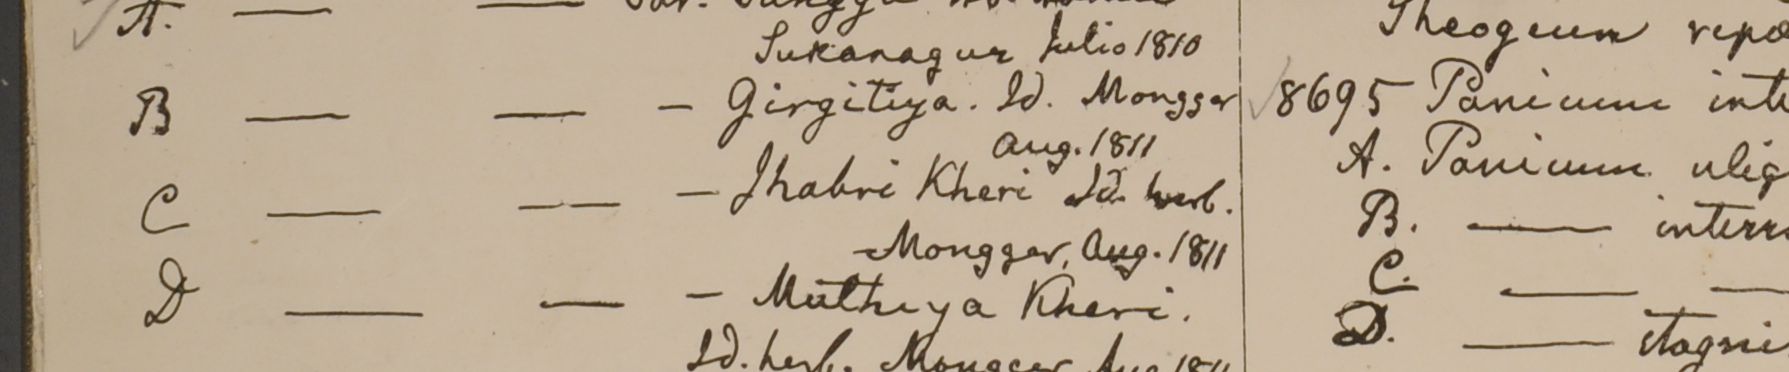 A. — —
Sukanagur Julio 1810
B — — — Girgitiya. Id. Mongger
Aug. 1811
C — — — Jhabri Kheri Id. herb.
Mongger, Aug. 1811
D — — — Muthiya Kheri.
Id. herb. Mongger Aug 1811
Theogeum
8695 Panicum
A. Panicum
B. —
C. — —
D. —